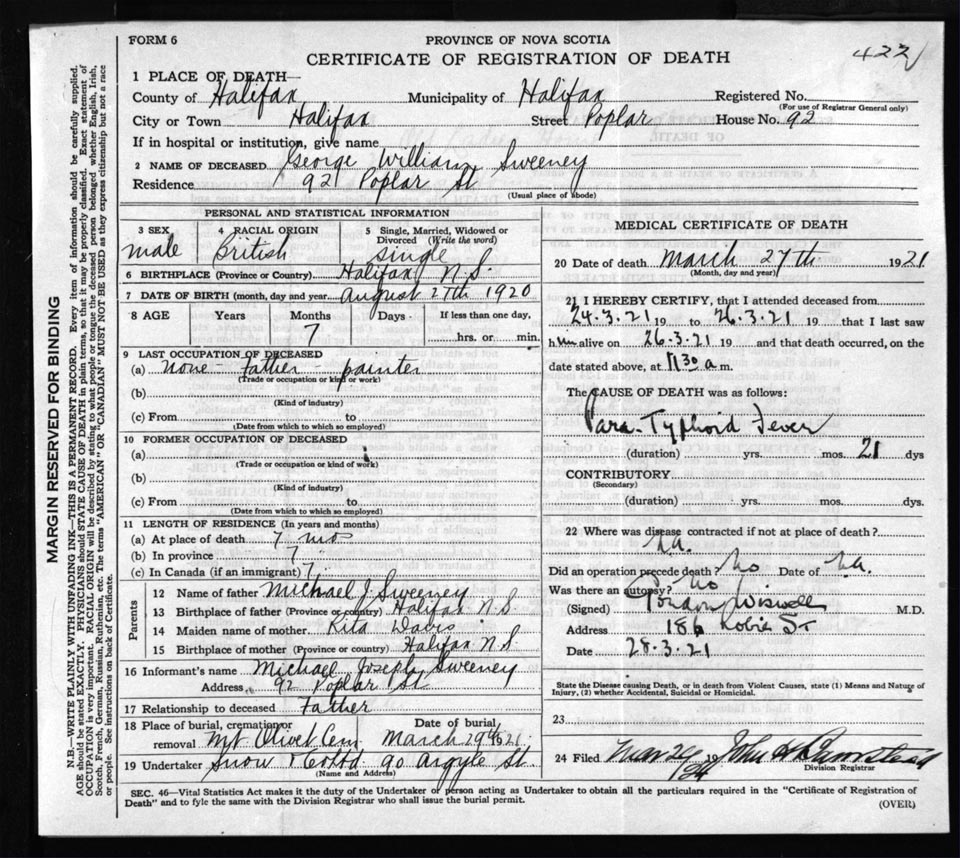 FORM 6
PROVINCE OF NOVA SCOTIA
CERTIFICATE OF REGISTRATION OF DEATH
422
1 PLACE OF DEATH—
County of Halifax Municipality of Halifax Registered No.
(For use of Registrar General only)
City or Town Halifax Street Poplar House No. 92
If in hospital or institution, give name
2 NAME OF DECEASED George William Sweeney
Residence 92 Poplar St
(Usual place of abode)
PERSONAL AND STATISTICAL INFORMATION
3 SEX 4 RACIAL ORIGIN 5 Single, Married, Widowed or Divorced (Write the word)
male British single
6 BIRTHPLACE (Province or Country) Halifax N.S.
7 DATE OF BIRTH (month, day and year) August 27th 1920
8 AGE Years Months Days If less than one day,
7 hrs. or min.
9 LAST OCCUPATION OF DECEASED
(a) none - Father - painter
(Trade or occupation or kind or work)
(b)
(Kind of industry)
(c) From to
(Date from which to which so employed)
10 FORMER OCCUPATION OF DECEASED
(a)
(Trade or occupation or kind of work)
(b)
(Kind of industry)
(c) From to
(Date from which to which so employed)
11 LENGTH OF RESIDENCE (In years and months)
(a) At place of death 7 mos
(b) In province 7
(c) In Canada (if an immigrant) 7
Parents
12 Name of father Michael J. Sweeney
13 Birthplace of father (Province or country) Halifax N.S
14 Maiden name of mother Rita Davis
15 Birthplace of mother (Province or country) Halifax N.S
16 Informant's name Michael Joseph Sweeney
Address 92 Poplar St
17 Relationship to deceased Father
18 Place of burial, cremation or removal Mt Olivet Cem Date of burial March 29th 1921
19 Undertaker Snow & Co Ltd 90 Argyle St.
(Name and Address)
MEDICAL CERTIFICATE OF DEATH
20 Date of death March 27th 1921
(Month, day and year)
21 I HEREBY CERTIFY, that I attended deceased from
24.3.21 19 to 26.3.21 19 that I last saw
him alive on 26.3.21 19 and that death occurred, on the
date stated above, at 11.30 a m.
The CAUSE OF DEATH was as follows:
Para-Typhoid Fever
(duration) yrs. mos. 21 dys
CONTRIBUTORY
(Secondary)
(duration) yrs. mos. dys.
22 Where was disease contracted if not at place of death?
n.a.
Did an operation precede death? No Date of n.a.
Was there an autopsy? No
(Signed) Gordon Wiswell M.D.
Address 186 Robie St
Date 28.3.21
State the Disease causing Death, or in death from Violent Causes, state (1) Means and Nature of
Injury, (2) whether Accidental, Suicidal or Homicidal.
23
24 Filed John A
Division Registrar
SEC. 46—Vital Statistics Act makes it the duty of the Undertaker or person acting as Undertaker to obtain all the particulars required in the "Certificate of Registration of
Death" and to fyle the same with the Division Registrar who shall issue the burial permit.
(OVER)
MARGIN RESERVED FOR BINDING
N.B.—WRITE PLAINLY WITH UNFADING INK—THIS IS A PERMANENT RECORD. Every item of information should be carefully supplied.
AGE should be stated EXACTLY. PHYSICIANS should STATE CAUSE OF DEATH in plain terms, so that it may be properly classified. Exact statement of
OCCUPATION is very important. RACIAL ORIGIN will be described by stating to what people or tongue the deceased person belonged whether English, Irish,
Scotch, French, German, Russian, Ruthenian, etc. The terms "AMERICAN" OR "CANADIAN" MUST NOT BE USED as they express citizenship but not a race
or people. See instructions on back of Certificate.